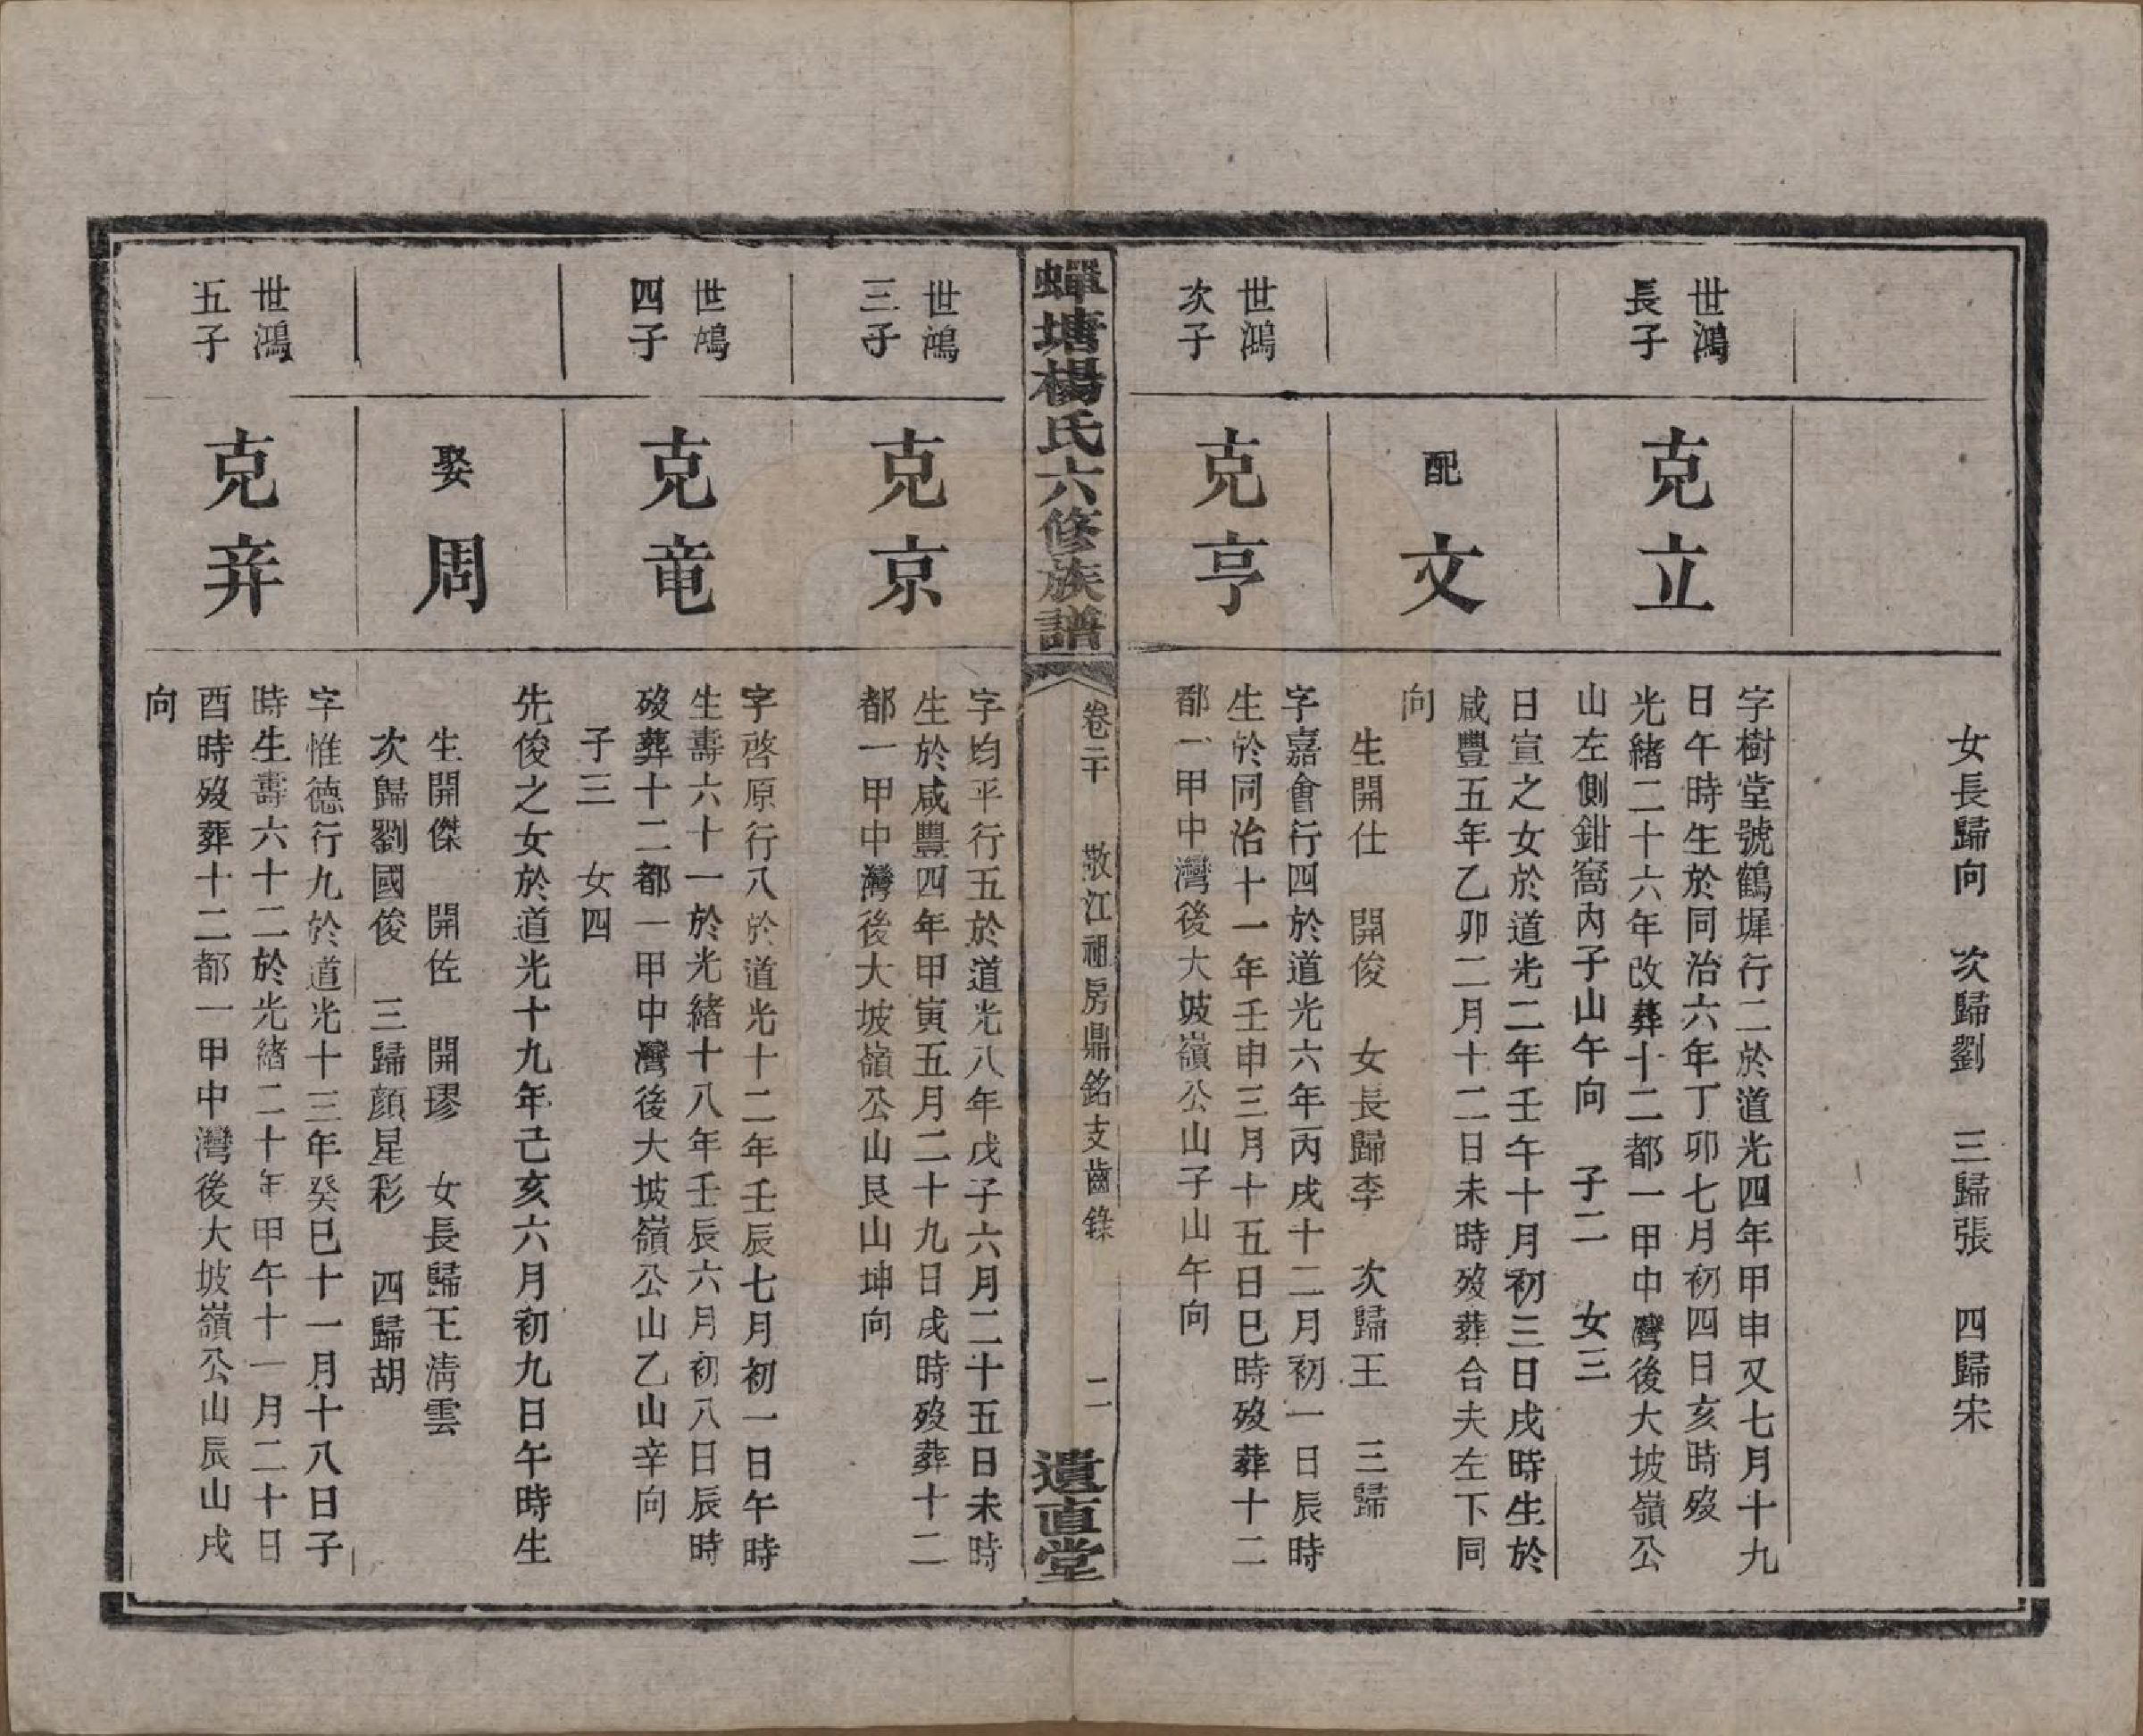 女長歸向　次歸劉　三歸張　四歸宋
世鴻
長子
克立
字樹堂號鶴墀行二於道光四年甲申又七月十九
日午時生於同治六年丁卯七月初四日亥時歿
光緒二十六年改葬十二都一甲中灣後大坡嶺公
山左側鉗窩內子山午向　子二　女三
配文
日宣之女於道光二年壬午十月初三日戌時生於
咸豐五年乙卯二月十二日未時歿葬合夫左下同
向
生開仕　開俊　女長歸李　次歸王　三歸
世鴻
次子
克亨
字嘉會行四於道光六年丙戌十二月初一日辰時
生於同治十一年壬申三月十五日巳時歿葬十二
都一甲中灣後大坡嶺公山子山午向
蟬塘楊氏六修族譜
卷二十　敬江祖房鼎銘支齒錄
二
遺直堂
世鴻
三子
克京
字均平行五於道光八年戊子六月二十五日未時
生於咸豐四年甲寅五月二十九日戌時歿葬十二
都一甲中灣後大坡嶺公山艮山坤向
世鴻
四子
克竜
字啓原行八於道光十二年壬辰七月初一日午時
生壽六十一於光緒十八年壬辰六月初八日辰時
歿葬十二都一甲中灣後大坡嶺公山乙山辛向
子三　女四
娶周
先俊之女於道光十九年己亥六月初九日午時生
生開傑　開佐　開璆　女長歸王淸雲
次歸劉國俊　三歸顔星彩　四歸胡
世鴻
五子
克弈
字惟德行九於道光十三年癸巳十一月十八日子
時生壽六十二於光緒二十年甲午十一月二十日
酉時歿葬十二都一甲中灣後大坡嶺公山辰山戌
向